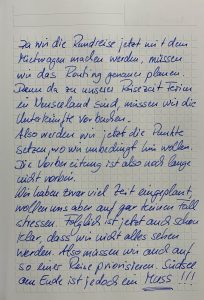 Da wir die Rundreise jetzt mit dem
Mietwagen machen werden, müssen
wir das Routing genauer planen.
Denn da zu unserer Reisezeit Ferien
in Neuseeland sind, müssen wir die
Unterkünfte vorbuchen.
Also werden wir jetzt die Punkte
setzen, wo wir unbedingt hin wollen.
Die Vorbereitung ist also noch lange
nicht vorbei.
Wir haben zwar viel Zeit eingeplant,
wollen uns aber auf gar keinen Fall
stressen. Folglich ist jetzt auch schon
klar, dass wir nicht alles sehen
werden. Also müssen wir auch auf
so einer Reise priorisieren. Südsee
am Ende ist jedoch ein MUSS !!!